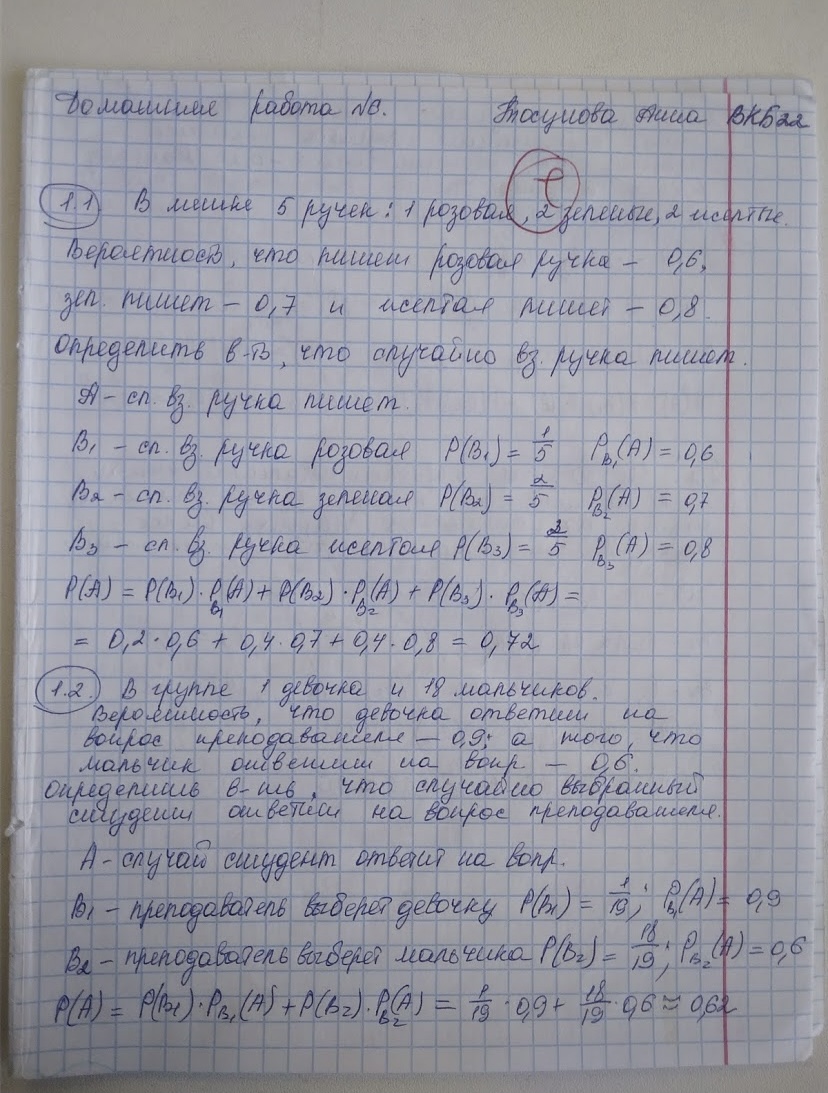 Домашняя работа №6. Тосунова Анна ВКБ22
1.1 В мешке 5 ручек: 1 розовая, 2 зеленые, 2 желтые.
Вероятность, что пишет розовая ручка – 0,6,
зел. пишет – 0,7 и желтая пишет – 0,8.
Определить в-ть, что случайно вз. ручка пишет.
А – сл. вз. ручка пишет.
B₁ – сл. вз. ручка розовая P(B₁) = 1/5 P_B₁(A) = 0,6
B₂ – сл. вз. ручка зеленая P(B₂) = 2/5 P_B₂(A) = 0,7
B₃ – сл. вз. ручка желтая P(B₃) = 2/5 P_B₃(A) = 0,8
P(A) = P(B₁)·P_B₁(A) + P(B₂)·P_B₂(A) + P(B₃)·P_B₃(A) =
= 0,2·0,6 + 0,4·0,7 + 0,4·0,8 = 0,72
1.2. В группе 1 девочка и 18 мальчиков.
Вероятность, что девочка ответит на
вопрос преподавателя – 0,9; а того, что
мальчик ответит на вопр – 0,6.
Определить в-ть, что случайно выбранный
студент ответит на вопрос преподавателя.
А – случай студент ответит на вопр.
B₁ – преподаватель выберет девочку P(B₁) = 1/19; P_B₁(A) = 0,9
B₂ – преподаватель выберет мальчика P(B₂) = 18/19; P_B₂(A) = 0,6
P(A) = P(B₁)·P_B₁(A) + P(B₂)·P_B₂(A) = 1/19·0,9 + 18/19·0,6 ≈ 0,62